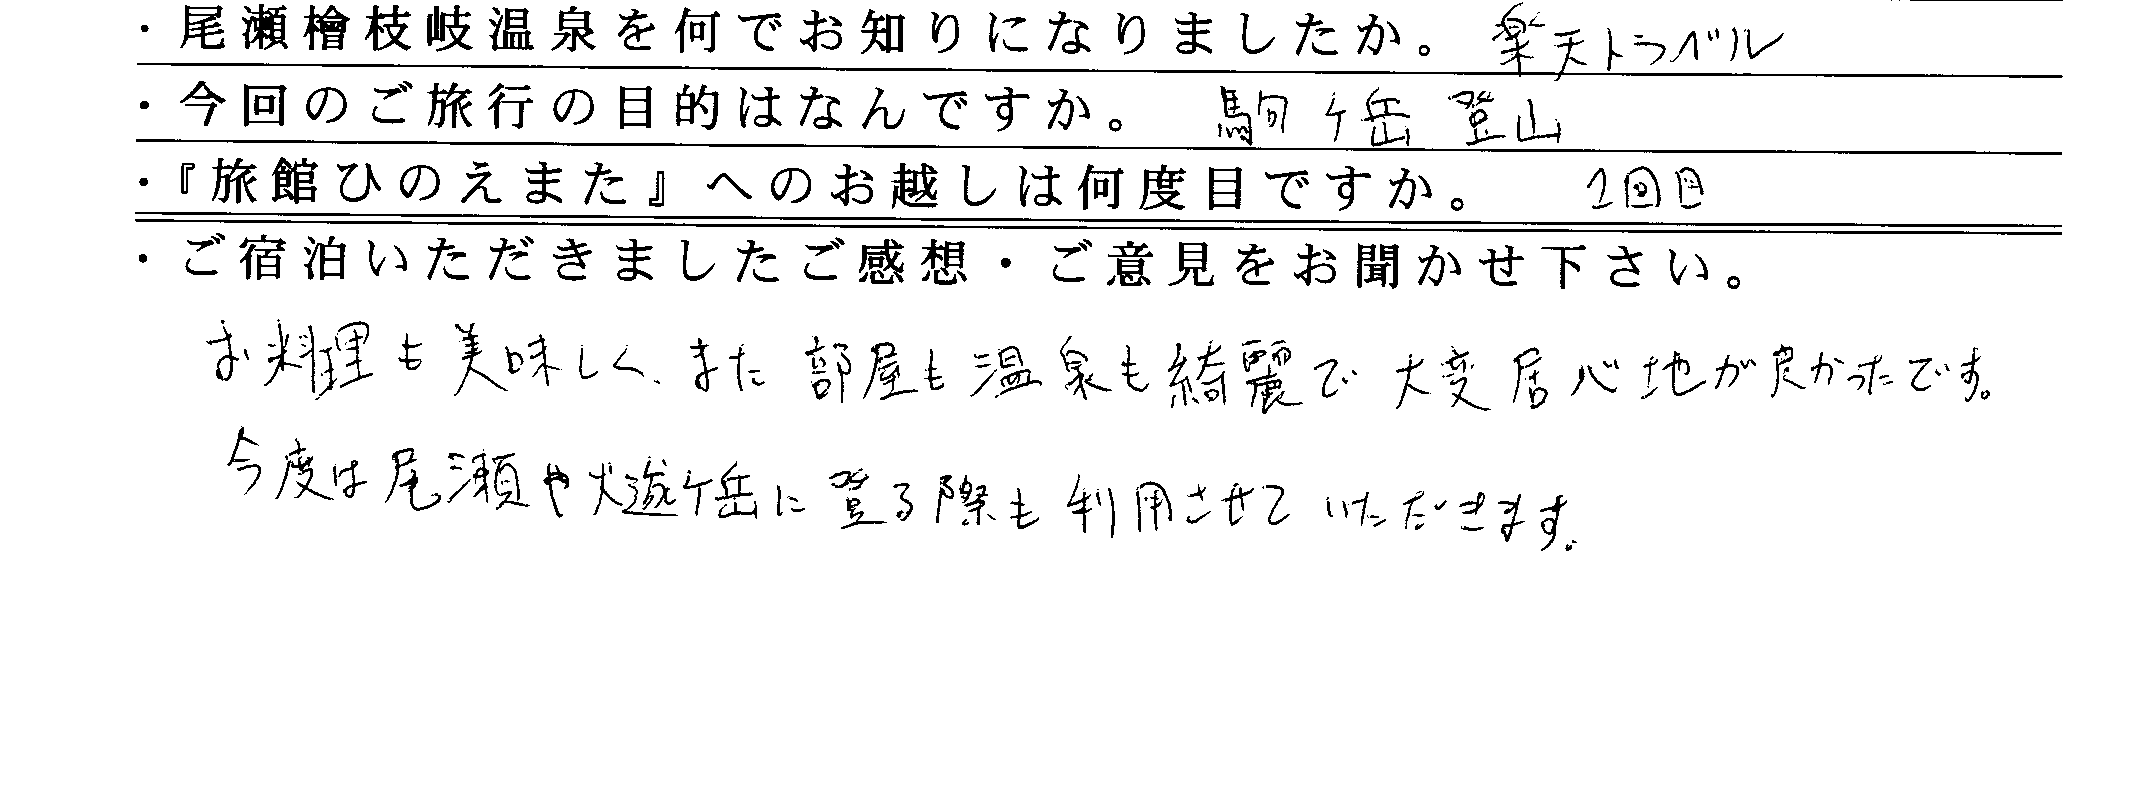 ・尾瀬檜枝岐温泉を何でお知りになりましたか。 楽天トラベル
・今回のご旅行の目的はなんですか。 駒ヶ岳 登山
・『旅館ひのえまた』へのお越しは何度目ですか。 1回目
・ご宿泊いただきましたご感想・ご意見をお聞かせ下さい。
お料理も美味しく、また部屋も温泉も綺麗で大変居心地が良かったです。
今度は尾瀬や燧ヶ岳に登る際も利用させていただきます。